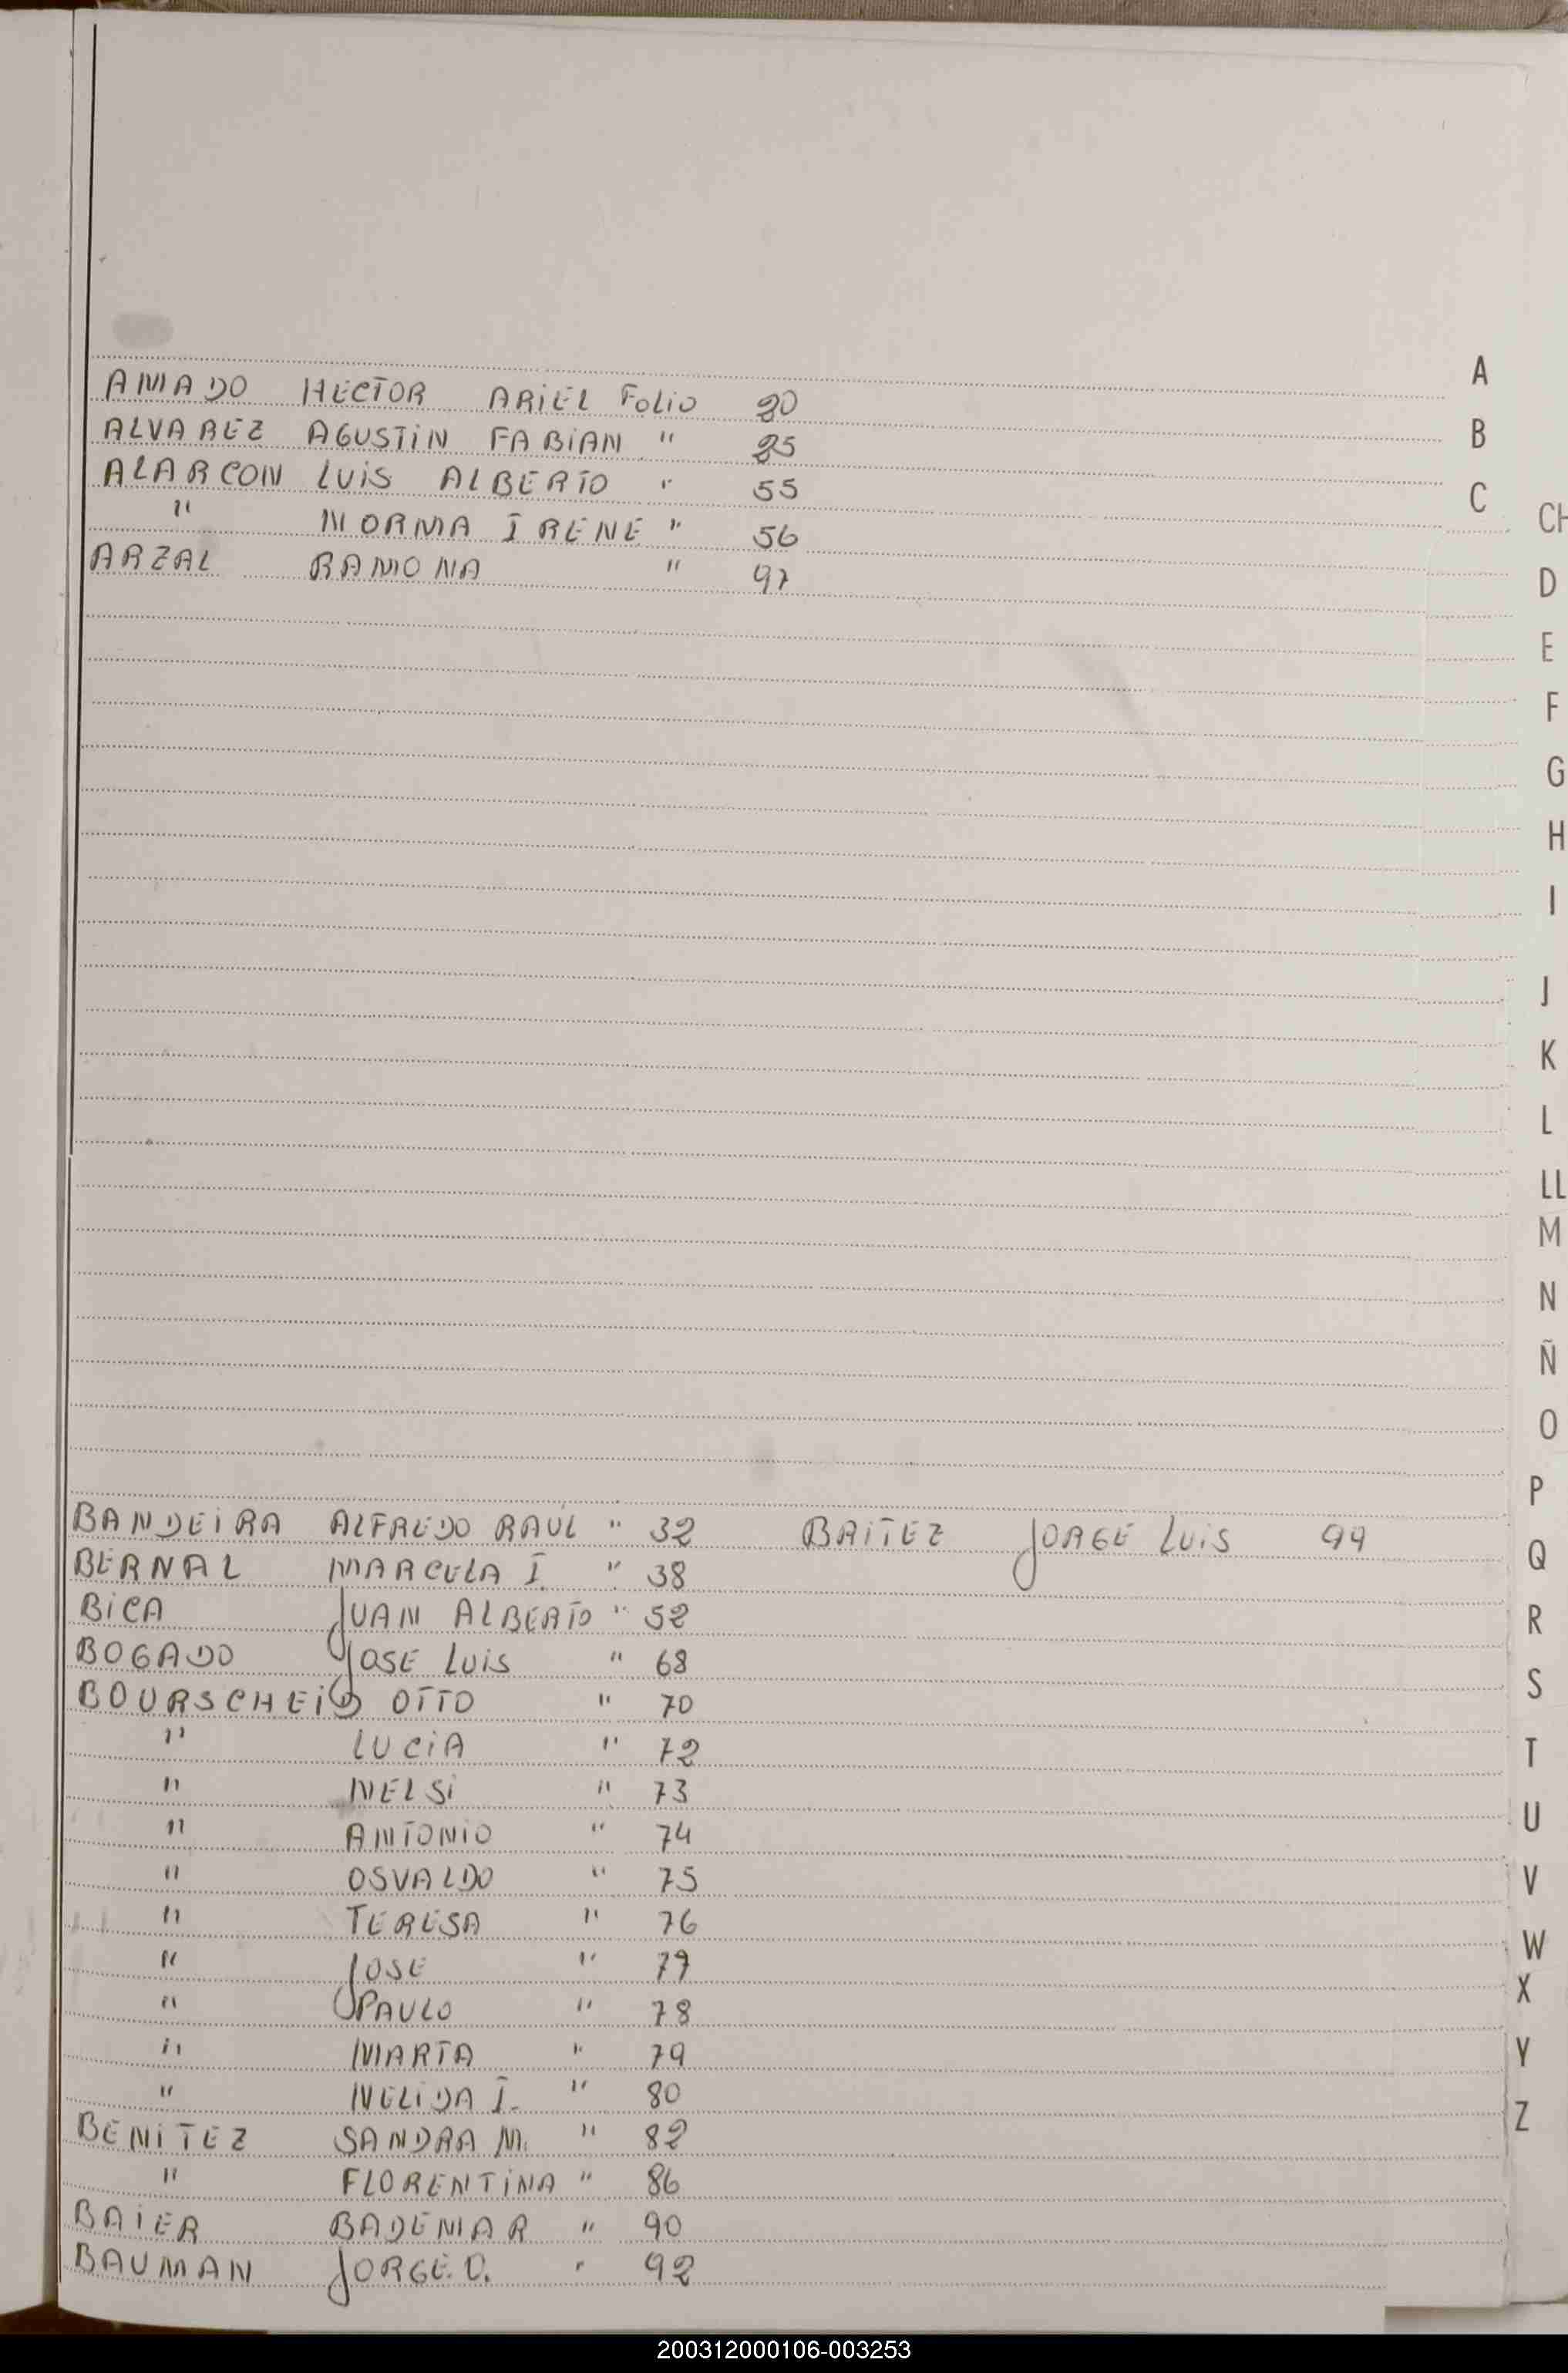 AMADO HECTOR ARIEL FOLIO 20
ALVAREZ AGUSTIN FABIAN " 25
ALARCON LUIS ALBERTO " 55
" NORMA IRENE " 56
ARZAL RAMONA " 97
BANDEIRA ALFREDO RAUL " 32 BAITEZ JORGE LUIS 99
BERNAL MARCELA I. " 38
BICA JUAN ALBERTO " 52
BOGADO JOSE LUIS " 68
BOURSCHEID OTTO " 70
" LUCIA " 72
" NELSI " 73
" ANTONIO " 74
" OSVALDO " 75
" TERESA " 76
" JOSE " 77
" PAULO " 78
" MARTA " 79
" NELIDA I. " 80
BENITEZ SANDRA M. " 82
" FLORENTINA " 86
BAIER BADEMAR " 90
BAUMAN JORGE. O. " 92
A
B
C
CH
D
E
F
G
H
I
J
K
L
LL
M
N
Ñ
O
P
Q
R
S
T
U
V
W
X
Y
Z
200312000106-003253